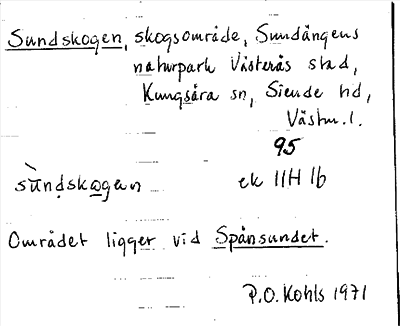 Sundskogen, skogsområde, Sundängens
naturpark Västerås stad,
Kungsåra sn, Siende hd,
Västm. l.
95
sùn̩dskogen ek 11H 1b
Området ligger vid Spånsundet.
P.O. Kohls 1971